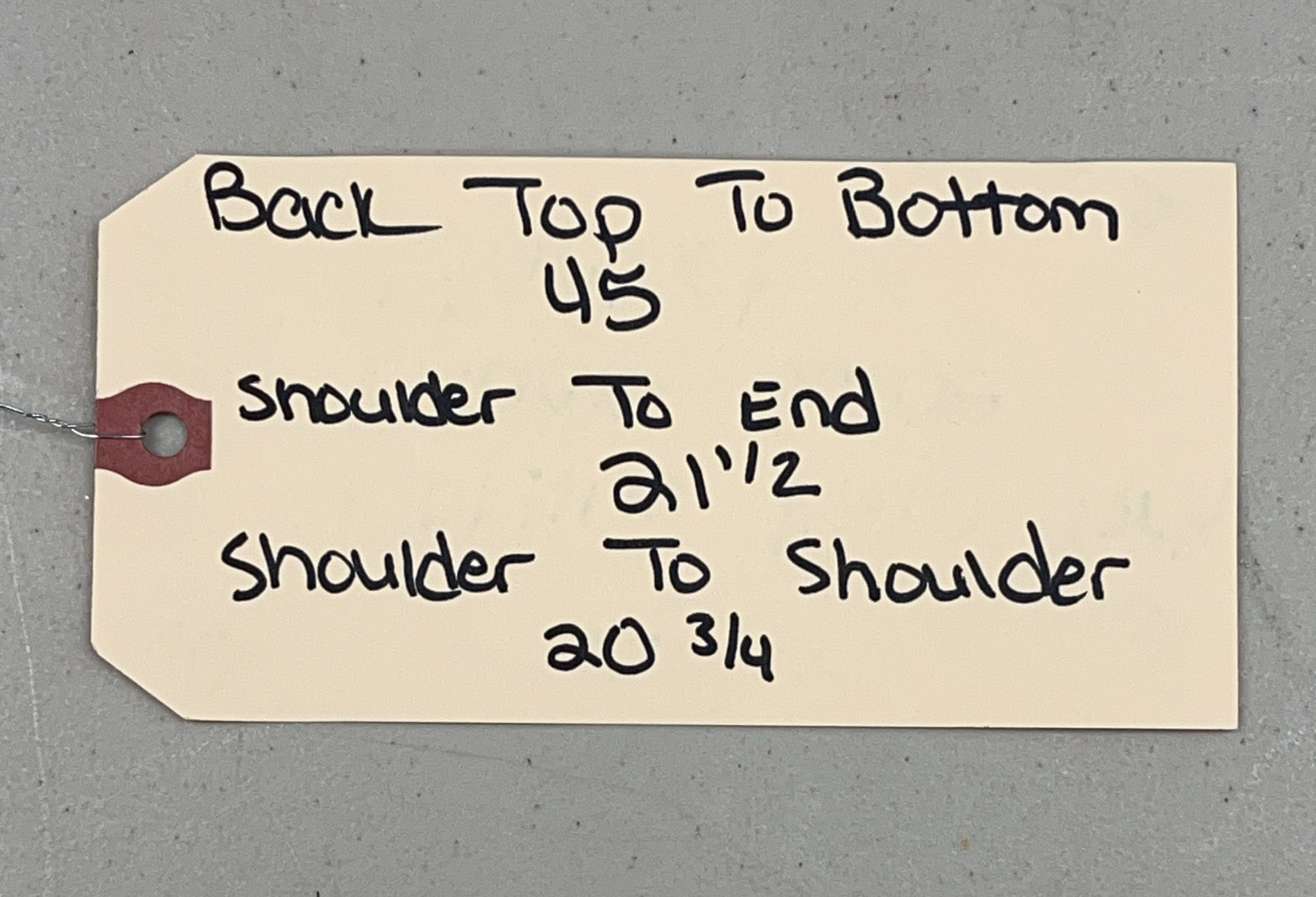 Back Top To Bottom
45
Shoulder To End
21 1/2
Shoulder To Shoulder
20 3/4